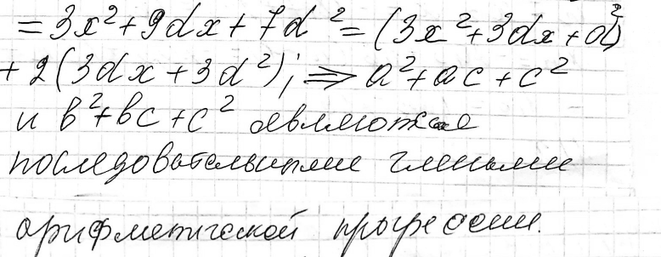 = 3x² + 9dx + 7d² = (3x² + 3dx + d²)
+ 2(3dx + 3d²); ⇒ a² + ac + c²
и в² + вс + с² являются
последовательными членами
арифметической прогрессии.